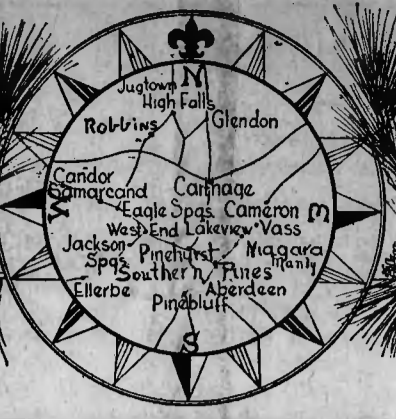 N
Jugtown
High Falls
Robbins
Glendon
Candor
Samarcand
Carthage
W
E
Eagle Spgs.
Cameron
West End
Lakeview
Vass
Jackson
Spgs.
Pinehurst
Niagara
Manly
Southern Pines
Ellerbe
Aberdeen
Pinebluff
S